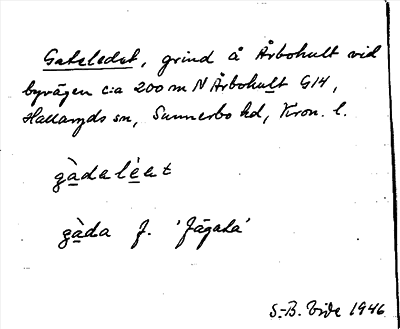 Gataledet, grind å Årbohult vid
byvägen c:a 200 m N Årbohult G14,
Hallaryds sn, Sunnerbo hd, Kron. l.
gàdalèet
gàda f. 'fägata'
S.-B. Vide 1946